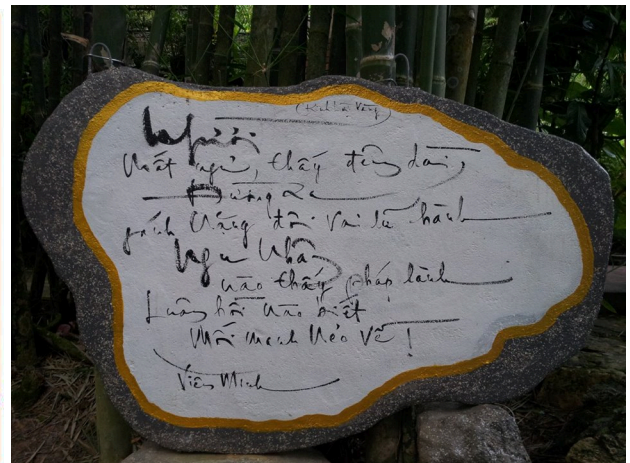 (Kinh Lời Vàng)
Người
Mất ngủ, thấy đêm dài,
Đường xa
gánh nặng đôi vai lữ hành
Ngu nhân
nào thấy pháp lành
Luân hồi nào biết
mối manh nẻo về!
Viên Minh